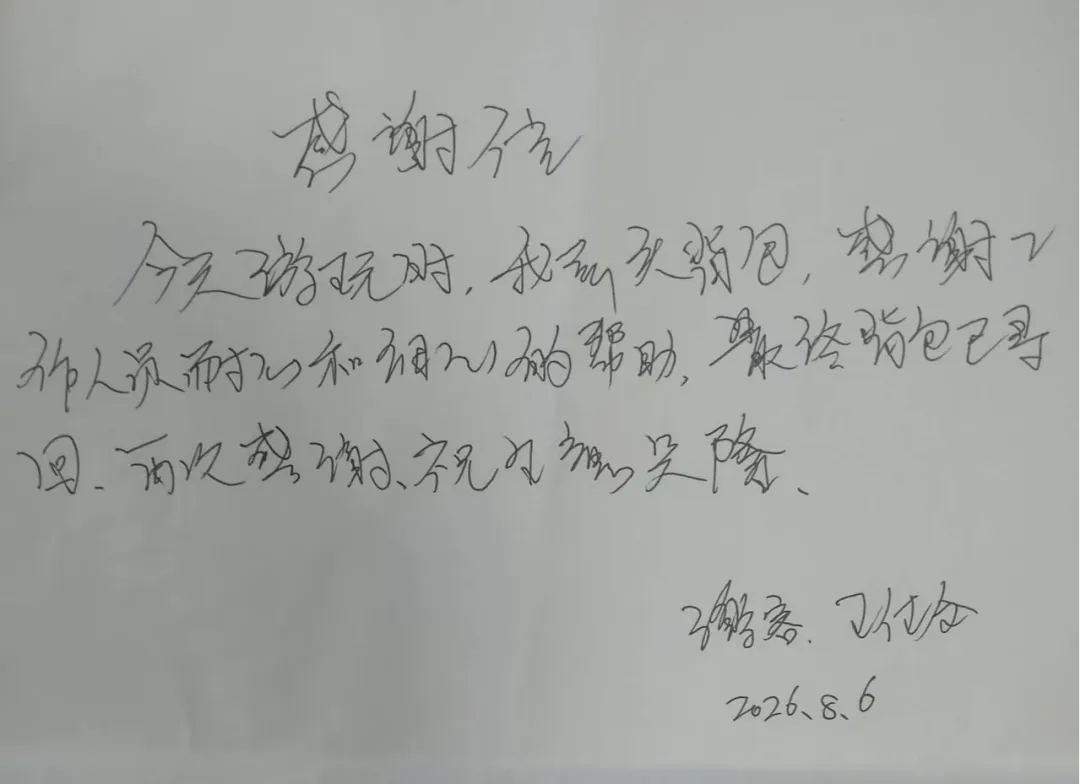 感谢信
今天游玩时,我丢失背包,感谢工
作人员耐心和细心的帮助,最终背包已寻
回、再次感谢、祝生意兴隆、
游客、王
2026、8、6